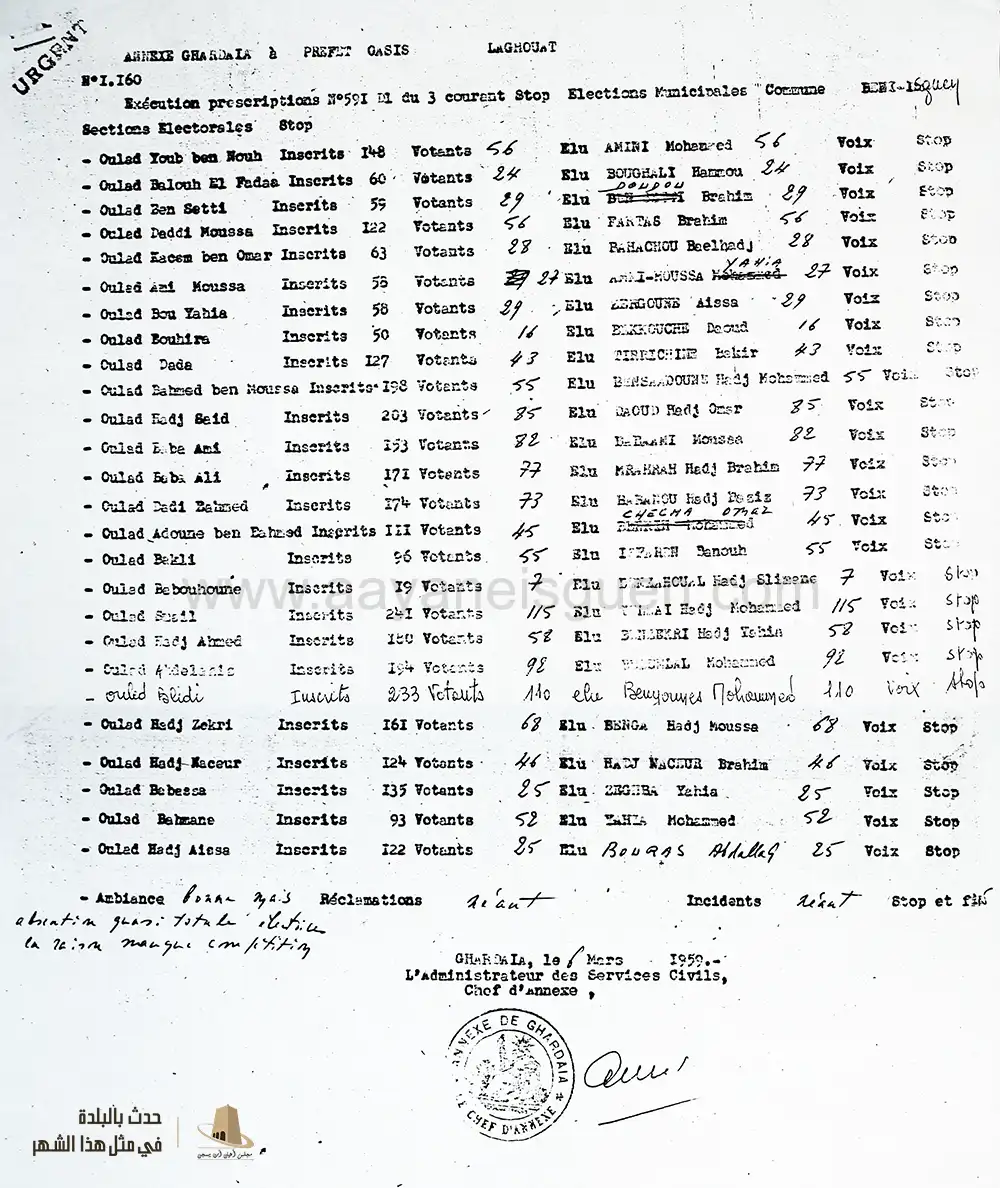 URGENT
ANNEXE GHARDAIA à PREFET OASIS LAGHOUAT
N°I.I60
Exécution prescriptions N°59I D1 du 3 courant Stop Elections Municipales Commune BENI-ISguey
Sections Electorales Stop
- Oulad Youb ben Nouh Inscrits I48 Votants 56 Elu AMINI Mohammed 56 Voix Stop
- Oulad Balouh El Fadaa Inscrits 60 Votants 24 Elu BOUGHALI Hammou 24 Voix Stop
DOUDOU
- Oulad Ben Setti Inscrits 59 Votants 29 Elu Brahim 29 Voix Stop
- Oulad Daddi Moussa Inscrits I22 Votants 56 Elu FARTAS Brahim 56 Voix Stop
- Oulad Kacem ben Omar Inscrits 63 Votants 28 Elu PAHACHOU Baelhadj 28 Voix Stop
YAHIA
- Oulad Ami Moussa Inscrits 58 Votants 27 Elu AMMI-MOUSSA Mohammed 27 Voix Stop
- Oulad Bou Yahia Inscrits 58 Votants 29 Elu ZERGOUNE Aissa 29 Voix Stop
- Oulad Bouhira Inscrits 50 Votants 16 Elu Daoud 16 Voix Stop
- Oulad Dada Inscrits I27 Votants 43 Elu TIRRICHINE Bakir 43 Voix Stop
- Oulad Bahmed ben Moussa Inscrits I98 Votants 55 Elu BENSAADOUNE Hadj Mohammed 55 Voix Stop
- Oulad Hadj Said Inscrits 203 Votants 85 Elu DAOUD Hadj Omar 85 Voix Stop
- Oulad Baba Ami Inscrits I53 Votants 82 Elu Moussa 82 Voix Stop
- Oulad Baba Ali Inscrits I7I Votants 77 Elu MRAHRAH Hadj Brahim 77 Voix Stop
- Oulad Dadi Bahmed Inscrits I74 Votants 73 Elu BABANOU Hadj 73 Voix Stop
CHECHA OMAR
- Oulad Adoune ben Bahmed Inscrits III Votants 45 Elu Mohammed 45 Voix Stop
- Oulad Bakli Inscrits 96 Votants 55 Elu Banouh 55 Voix Stop
- Oulad Babouhoune Inscrits I9 Votants 7 Elu Hadj Slimane 7 Voix Stop
www.aayaneisguen.com
- Oulad Inscrits 24I Votants 115 Elu Hadj Mohammed 115 Voix Stop
- Oulad Hadj Ahmed Inscrits I80 Votants 58 Elu Hadj Yahia 58 Voix Stop
- Oulad Inscrits I94 Votants 92 Elu Mohammed 92 Voix Stop
- Ouled Blidi Inscrits 233 Votants 110 elu Benyounes Mohammed 110 Voix Stop
- Oulad Hadj Zekri Inscrits I6I Votants 68 Elu BENGA Hadj Moussa 68 Voix Stop
- Oulad Hadj Naceur Inscrits I24 Votants 46 Elu HADJ NACEUR Brahim 46 Voix Stop
- Oulad Babessa Inscrits I35 Votants 25 Elu ZEGHBA Yahia 25 Voix Stop
- Oulad Bahmane Inscrits 93 Votants 52 Elu YAHIA Mohammed 52 Voix Stop
- Oulad Hadj Aissa Inscrits I22 Votants 25 Elu BOURAS Abdallah 25 Voix Stop
- Ambiance bonne mais Réclamations néant Incidents néant Stop et fin
abstention quasi totale
la raison manque compétition
GHARDAIA, le 6 Mars I959.-
L'Administrateur des Services Civils,
Chef d'Annexe ,
ANNEXE DE GHARDAIA
LE CHEF D'ANNEXE
حدث بالبلدة
في مثل هذا الشهر
مجلس أعيان بن يسجن